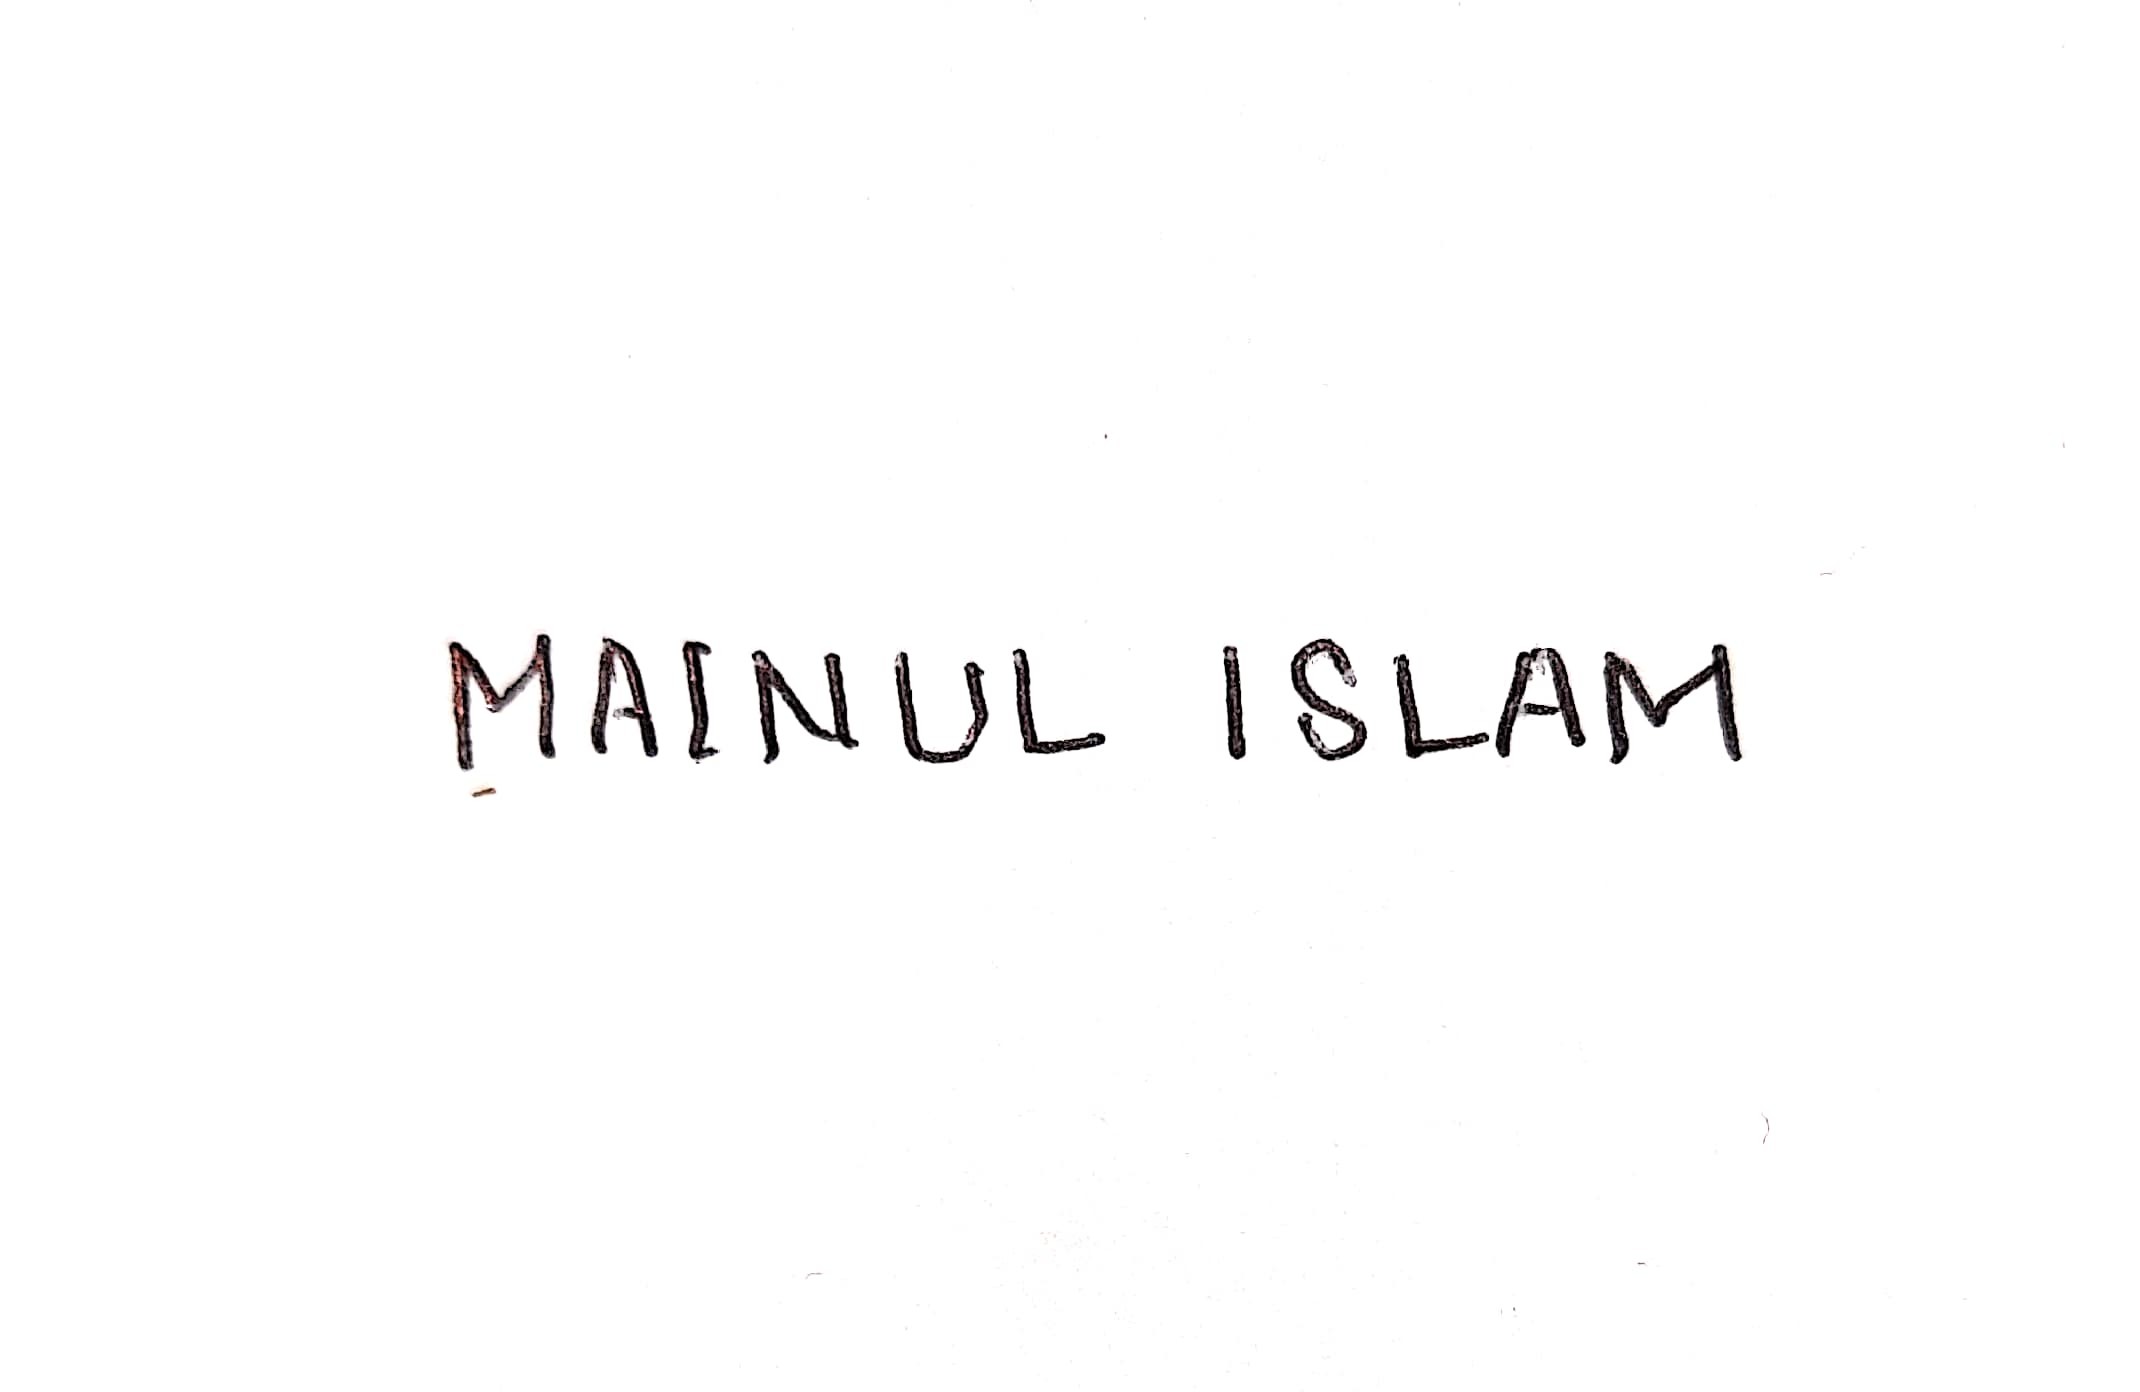 MAINUL ISLAM